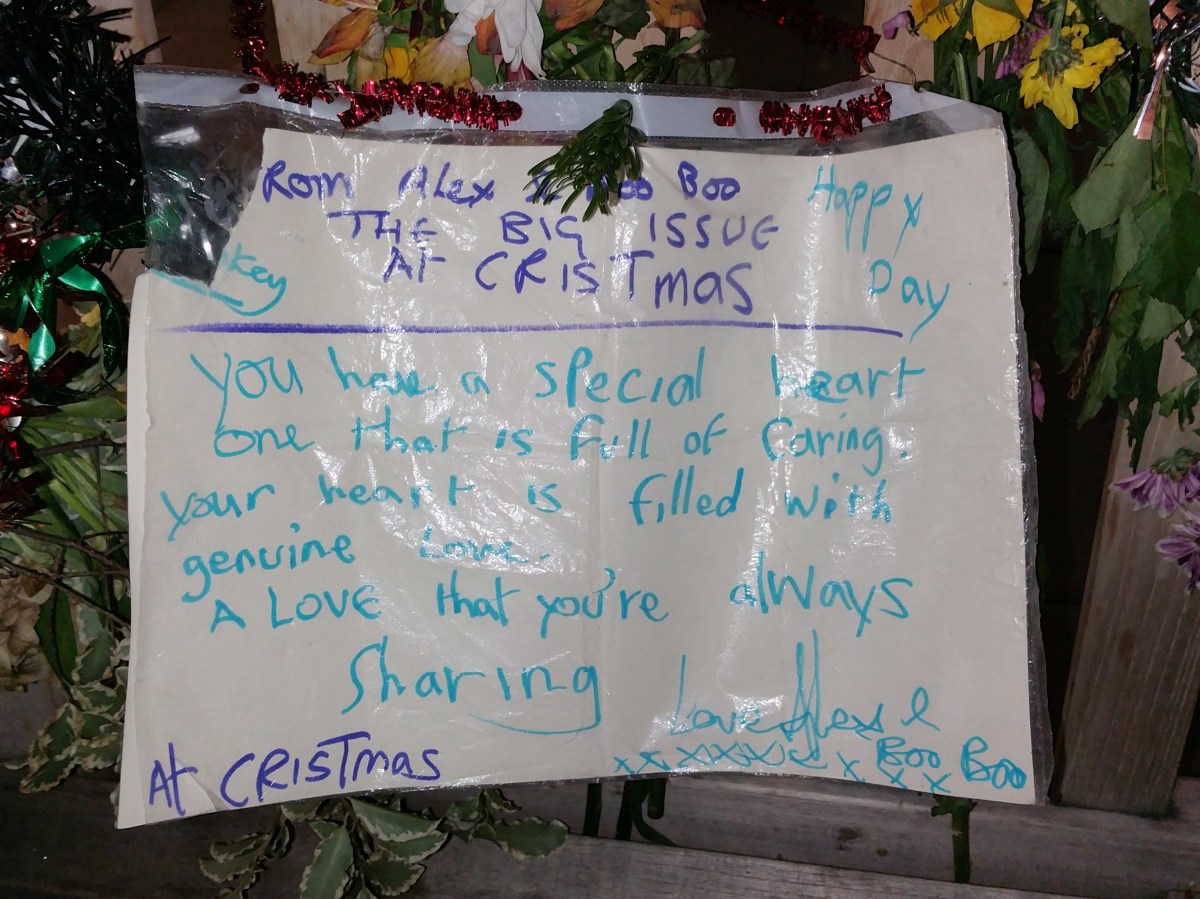 Rom Alex & Boo Boo Happy
THE BIG ISSUE
At CRISTmas Day
key
you have a special heart
one that is full of Caring.
your heart is filled with
genuine Love.
A LOVE that you're always
Sharing
Love Alex &
xx xxxxx x Boo Boo
x x
At CRISTmas